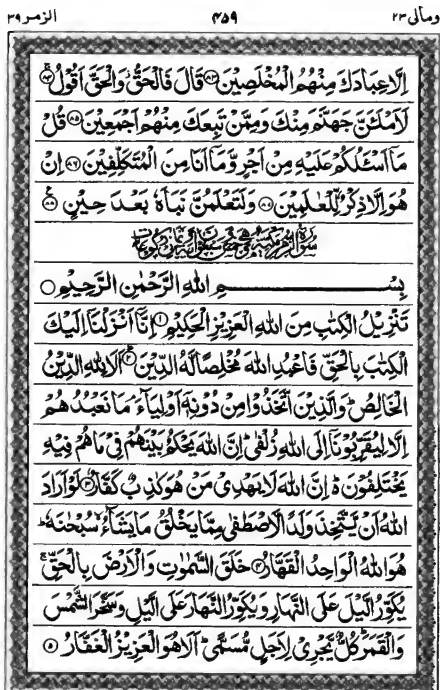 ومالی ٢٣ ۴۵۹ الزمر ٣٩
اِلَّا عِبَادَكَ مِنْهُمُ الْمُخْلَصِيْنَ ﴿٨٣﴾ قَالَ فَالْحَقُّ وَالْحَقَّ اَقُوْلُ ﴿٨٤﴾
لَاَمْلَـَٔنَّ جَهَنَّمَ مِنْكَ وَمِمَّنْ تَبِعَكَ مِنْهُمْ اَجْمَعِيْنَ ﴿٨٥﴾ قُلْ
مَاۤ اَسْـَٔلُكُمْ عَلَيْهِ مِنْ اَجْرٍ وَّمَاۤ اَنَا مِنَ الْمُتَكَلِّفِيْنَ ﴿٨٦﴾ اِنْ
هُوَ اِلَّا ذِكْرٌ لِّلْعٰلَمِيْنَ ﴿٨٧﴾ وَلَتَعْلَمُنَّ نَبَاَهٗ بَعْدَ حِيْنٍ ﴿٨٨﴾
بِسْمِ اللهِ الرَّحْمٰنِ الرَّحِيْمِ
تَنْزِيْلُ الْكِتٰبِ مِنَ اللهِ الْعَزِيْزِ الْحَكِيْمِ ﴿١﴾ اِنَّاۤ اَنْزَلْنَاۤ اِلَيْكَ
الْكِتٰبَ بِالْحَقِّ فَاعْبُدِ اللهَ مُخْلِصًا لَّهُ الدِّيْنَ ﴿٢﴾ اَلَا لِلّٰهِ الدِّيْنُ
الْخَالِصُ ؕ وَالَّذِيْنَ اتَّخَذُوْا مِنْ دُوْنِهٖۤ اَوْلِيَآءَ ۘ مَا نَعْبُدُهُمْ
اِلَّا لِيُقَرِّبُوْنَاۤ اِلَى اللهِ زُلْفٰى ؕ اِنَّ اللهَ يَحْكُمُ بَيْنَهُمْ فِيْ مَا هُمْ فِيْهِ
يَخْتَلِفُوْنَ ؕ اِنَّ اللهَ لَا يَهْدِيْ مَنْ هُوَ كٰذِبٌ كَفَّارٌ ﴿٣﴾ لَوْ اَرَادَ
اللهُ اَنْ يَّتَّخِذَ وَلَدًا لَّاصْطَفٰى مِمَّا يَخْلُقُ مَا يَشَآءُ ۙ سُبْحٰنَهٗ ؕ
هُوَ اللهُ الْوَاحِدُ الْقَهَّارُ ﴿٤﴾ خَلَقَ السَّمٰوٰتِ وَالْاَرْضَ بِالْحَقِّ ۚ
يُكَوِّرُ الَّيْلَ عَلَى النَّهَارِ وَيُكَوِّرُ النَّهَارَ عَلَى الَّيْلِ وَسَخَّرَ الشَّمْسَ
وَالْقَمَرَ ؕ كُلٌّ يَّجْرِيْ لِاَجَلٍ مُّسَمًّى ؕ اَلَا هُوَ الْعَزِيْزُ الْغَفَّارُ ﴿٥﴾